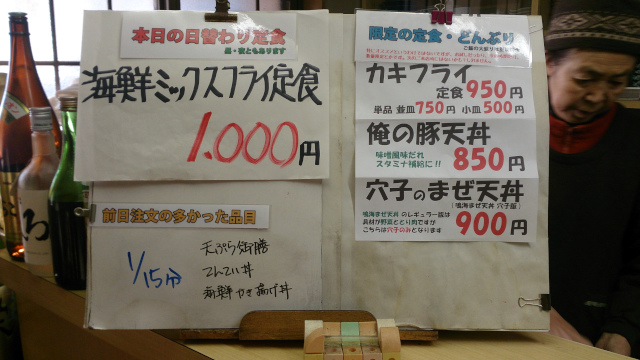 本日の日替わり定食
海鮮ミックスフライ定食
1.000円
前日注文の多かった品目
1/15分
天ぷら
てんてい丼
海鮮やき揚げ丼
限定の定食・どんぶり
カキフライ
定食 950円
単品 並皿 750円 小皿 500円
俺の豚天丼
味噌風味だれ
スタミナ補給に!!
850円
穴子のまぜ天丼
(鳴海まぜ天丼 穴子版)
鳴海まぜ天丼 のレギュラー版は
具材が野菜ととり肉ですが
こちらは穴子のみとなります
900円
ろ